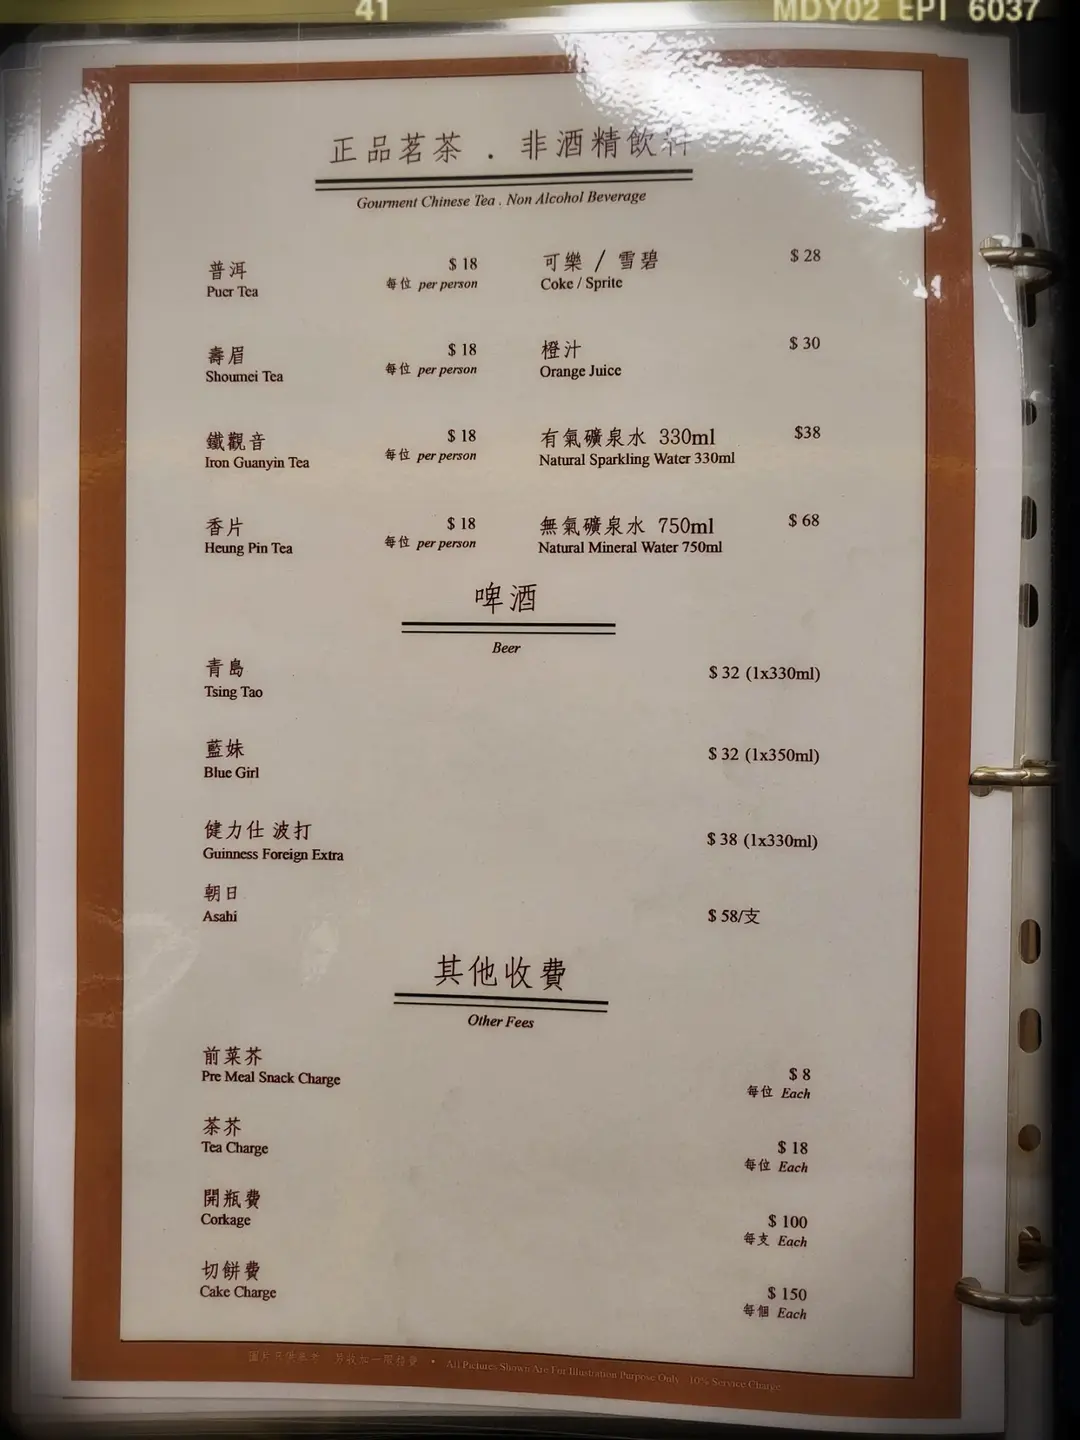 41
MDY02 EPI 6037
正品茗茶 . 非酒精飲料
Gourment Chinese Tea . Non Alcohol Beverage
普洱 $ 18
Puer Tea 每位 per person
可樂 / 雪碧 $ 28
Coke / Sprite
壽眉 $ 18
Shoumei Tea 每位 per person
橙汁 $ 30
Orange Juice
鐵觀音 $ 18
Iron Guanyin Tea 每位 per person
有氣礦泉水 330ml $38
Natural Sparkling Water 330ml
香片 $ 18
Heung Pin Tea 每位 per person
無氣礦泉水 750ml $ 68
Natural Mineral Water 750ml
啤酒
Beer
青島 $ 32 (1x330ml)
Tsing Tao
藍妹 $ 32 (1x350ml)
Blue Girl
健力仕 波打 $ 38 (1x330ml)
Guinness Foreign Extra
朝日
Asahi $ 58/支
其他收費
Other Fees
前菜芥 $ 8
Pre Meal Snack Charge 每位 Each
茶芥 $ 18
Tea Charge 每位 Each
開瓶費 $ 100
Corkage 每支 Each
切餅費 $ 150
Cake Charge 每個 Each
圖片只供參考 另收加一服務費 • All Pictures Shown Are For Illustration Purpose Only 10% Service Charge